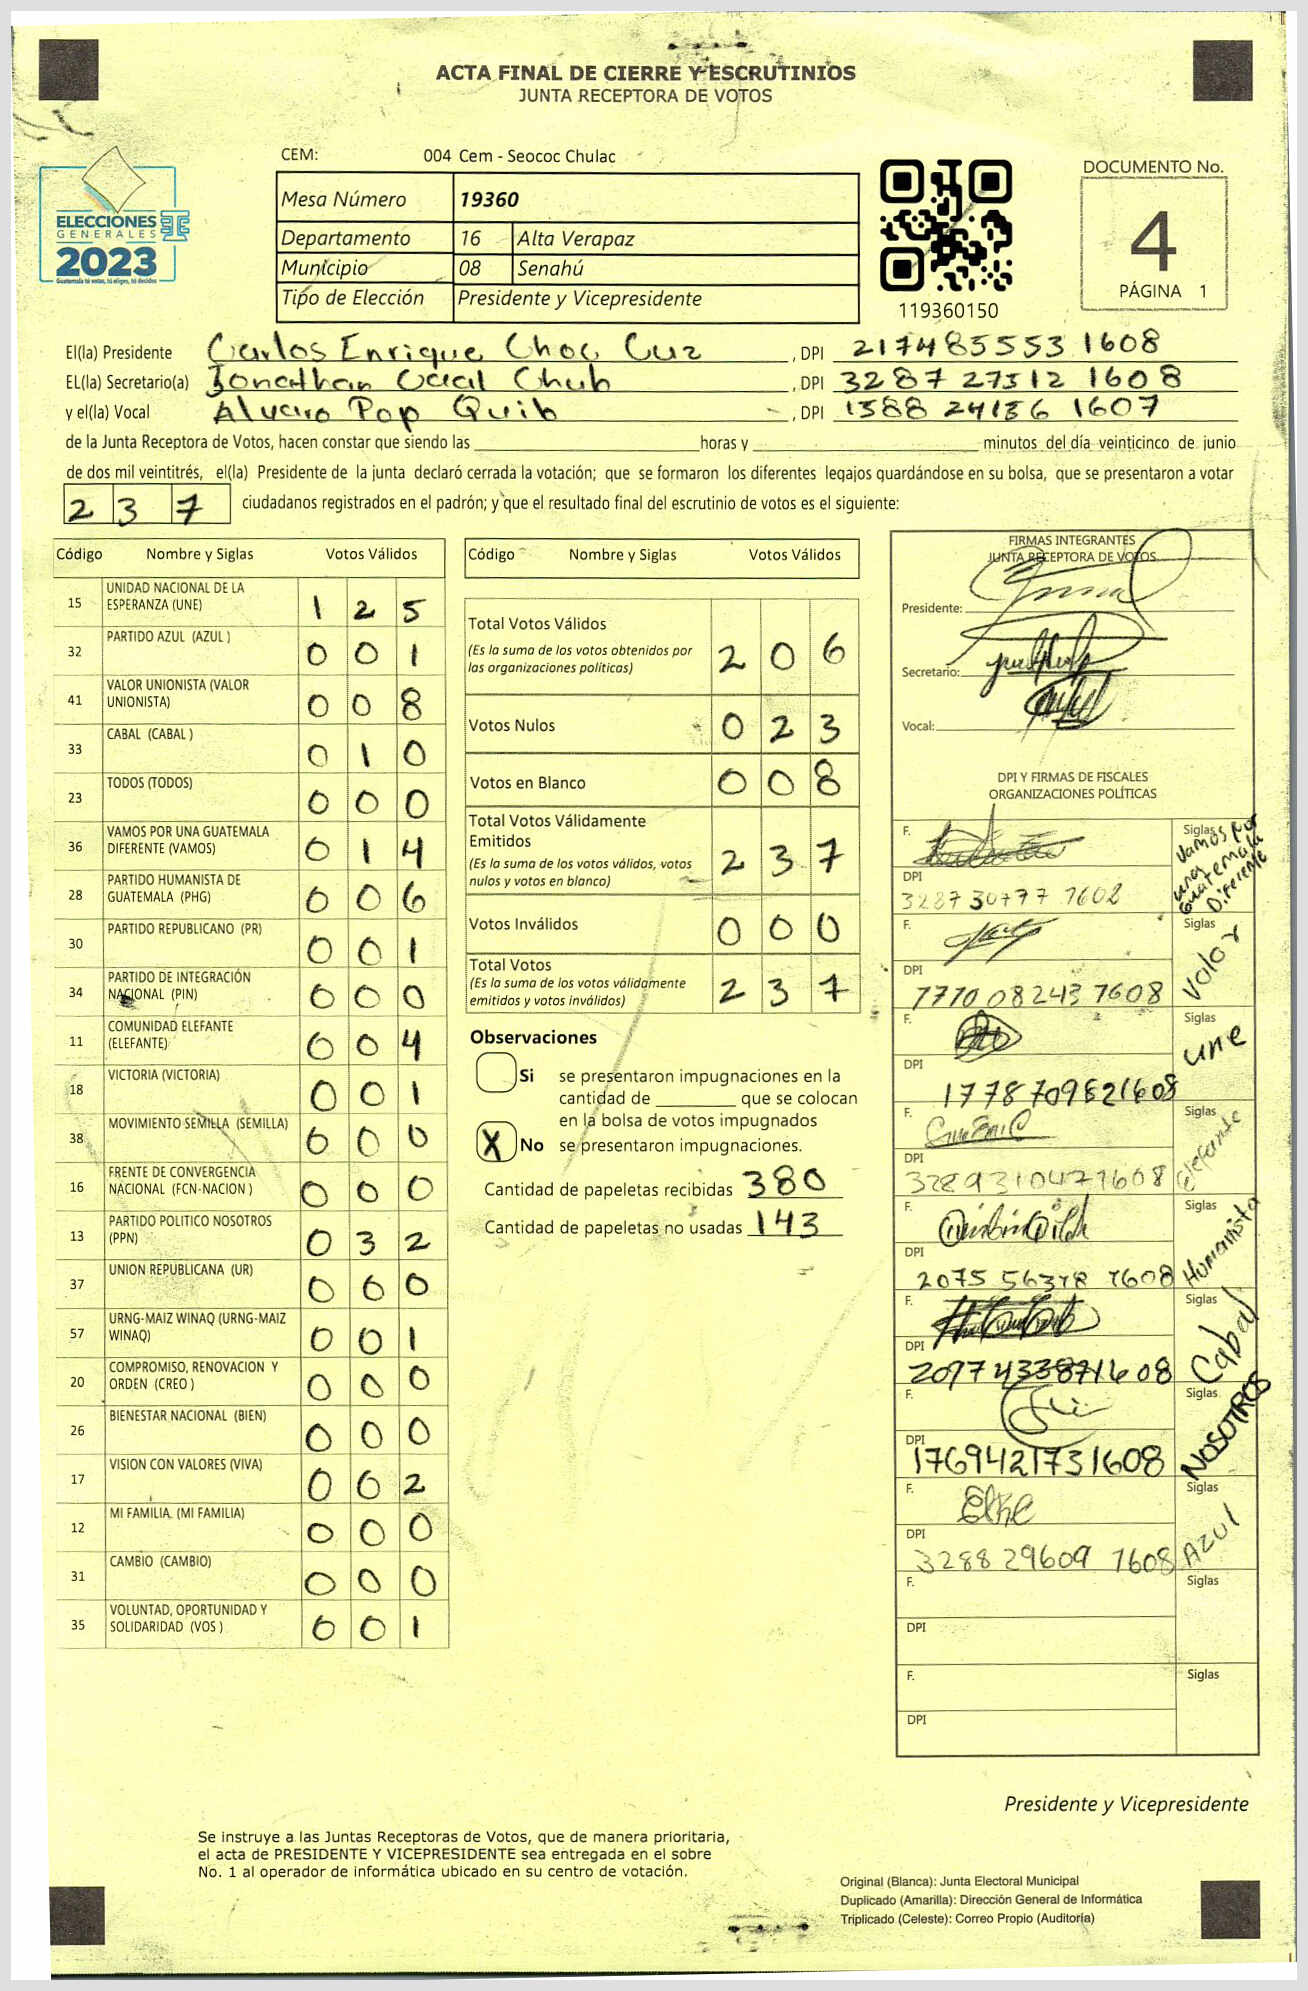 ACTA FINAL DE CIERRE Y ESCRUTINIOS
JUNTA RECEPTORA DE VOTOS
CEM: 004 Cem - Seococ Chulac
ELECCIONES
GENERALES
2023
Guatemala tú votas, tú eliges, tú decides
Mesa Número 19360
Departamento 16 Alta Verapaz
Municipio 08 Senahú
Tipo de Elección Presidente y Vicepresidente
119360150
DOCUMENTO No.
4
PÁGINA 1
El(la) Presidente Carlos Enrique Choc Cuz, DPI 217485553 1608
EL(la) Secretario(a) Jonathan Caal Chub, DPI 3287 27312 1608
y el(la) Vocal Alvaro Pop Quib, DPI 1388 24136 1607
de la Junta Receptora de Votos, hacen constar que siendo las horas y minutos del día veinticinco de junio
de dos mil veintitrés, el(la) Presidente de la junta declaró cerrada la votación; que se formaron los diferentes legajos guardándose en su bolsa, que se presentaron a votar
237 ciudadanos registrados en el padrón; y que el resultado final del escrutinio de votos es el siguiente:
Código Nombre y Siglas Votos Válidos
15 UNIDAD NACIONAL DE LA ESPERANZA (UNE) 1 2 5
32 PARTIDO AZUL (AZUL ) 0 0 1
41 VALOR UNIONISTA (VALOR UNIONISTA) 0 0 8
33 CABAL (CABAL ) 0 1 0
23 TODOS (TODOS) 0 0 0
36 VAMOS POR UNA GUATEMALA DIFERENTE (VAMOS) 0 1 4
28 PARTIDO HUMANISTA DE GUATEMALA (PHG) 0 0 6
30 PARTIDO REPUBLICANO (PR) 0 0 1
34 PARTIDO DE INTEGRACIÓN NACIONAL (PIN) 0 0 0
11 COMUNIDAD ELEFANTE (ELEFANTE) 0 0 4
18 VICTORIA (VICTORIA) 0 0 1
38 MOVIMIENTO SEMILLA (SEMILLA) 0 0 0
16 FRENTE DE CONVERGENCIA NACIONAL (FCN-NACION ) 0 0 0
13 PARTIDO POLITICO NOSOTROS (PPN) 0 3 2
37 UNION REPUBLICANA (UR) 0 0 0
57 URNG-MAIZ WINAQ (URNG-MAIZ WINAQ) 0 0 1
20 COMPROMISO, RENOVACION Y ORDEN (CREO ) 0 0 0
26 BIENESTAR NACIONAL (BIEN) 0 0 0
17 VISION CON VALORES (VIVA) 0 0 2
12 MI FAMILIA. (MI FAMILIA) 0 0 0
31 CAMBIO (CAMBIO) 0 0 0
35 VOLUNTAD, OPORTUNIDAD Y SOLIDARIDAD (VOS ) 0 0 1
Código Nombre y Siglas Votos Válidos
Total Votos Válidos 2 0 6
(Es la suma de los votos obtenidos por
las organizaciones políticas)
Votos Nulos 0 2 3
Votos en Blanco 0 0 8
Total Votos Válidamente
Emitidos 2 3 7
(Es la suma de los votos válidos, votos
nulos y votos en blanco)
Votos Inválidos 0 0 0
Total Votos 2 3 7
(Es la suma de los votos válidamente
emitidos y votos inválidos)
Observaciones
Si se presentaron impugnaciones en la
cantidad de que se colocan
en la bolsa de votos impugnados
X No se presentaron impugnaciones.
Cantidad de papeletas recibidas 380
Cantidad de papeletas no usadas 143
FIRMAS INTEGRANTES
JUNTA RECEPTORA DE VOTOS
Presidente:
Secretario:
Vocal:
DPI Y FIRMAS DE FISCALES
ORGANIZACIONES POLÍTICAS
F. Siglas Vamos Por una Guatemala Diferente
DPI 3287 30777 1602
F. Siglas Valor
DPI 1770 08243 1608
F. Siglas une
DPI 1778709821608
F. Siglas elefante
DPI 3289310471608
F. Siglas Humanista
DPI 2075 56378 1608
F. Siglas Cabal
DPI 2097433871608
F. Siglas NOSOTROS
DPI 1769421731608
F. Siglas AZUL
DPI 3288 29609 1608
F. Siglas
DPI
F. Siglas
DPI
Presidente y Vicepresidente
Se instruye a las Juntas Receptoras de Votos, que de manera prioritaria,
el acta de PRESIDENTE Y VICEPRESIDENTE sea entregada en el sobre
No. 1 al operador de informática ubicado en su centro de votación.
Original (Blanca): Junta Electoral Municipal
Duplicado (Amarilla): Dirección General de Informática
Triplicado (Celeste): Correo Propio (Auditoría)